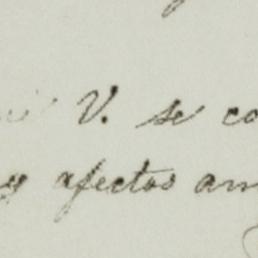 V. se co
y afectos am